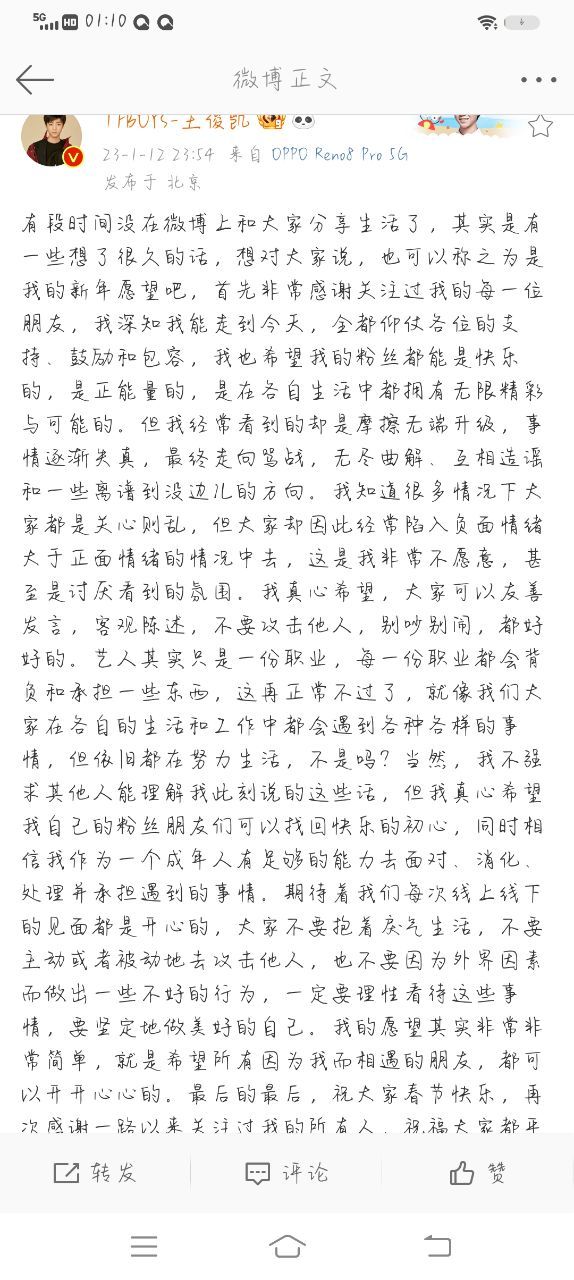 5G HD 01:10
微博正文
TFBOYS-王俊凯
23-1-12 23:54 来自 OPPO Reno8 Pro 5G
发布于 北京
有段时间没在微博上和大家分享生活了，其实是有
一些想了很久的话，想对大家说，也可以称之为是
我的新年愿望吧，首先非常感谢关注过我的每一位
朋友，我深知我能走到今天，全都仰仗各位的支
持、鼓励和包容，我也希望我的粉丝都能是快乐
的，是正能量的，是在各自生活中都拥有无限精彩
与可能的。但我经常看到的却是摩擦无端升级，事
情逐渐失真，最终走向骂战，无尽曲解、互相造谣
和一些离谱到没边儿的方向。我知道很多情况下大
家都是关心则乱，但大家却因此经常陷入负面情绪
大于正面情绪的情况中去，这是我非常不愿意，甚
至是讨厌看到的氛围。我真心希望，大家可以友善
发言，客观陈述，不要攻击他人，别吵别闹，都好
好的。艺人其实只是一份职业，每一份职业都会背
负和承担一些东西，这再正常不过了，就像我们大
家在各自的生活和工作中都会遇到各种各样的事
情，但依旧都在努力生活，不是吗？当然，我不强
求其他人能理解我此刻说的这些话，但我真心希望
我自己的粉丝朋友们可以找回快乐的初心，同时相
信我作为一个成年人有足够的能力去面对、消化、
处理并承担遇到的事情。期待着我们每次线上线下
的见面都是开心的，大家不要抱着戾气生活，不要
主动或者被动地去攻击他人，也不要因为外界因素
而做出一些不好的行为，一定要理性看待这些事
情，要坚定地做美好的自己。我的愿望其实非常非
常简单，就是希望所有因为我而相遇的朋友，都可
以开开心心的。最后的最后，祝大家春节快乐，再
次感谢一路以来关注过我的所有人，祝福大家都平
转发 评论 赞